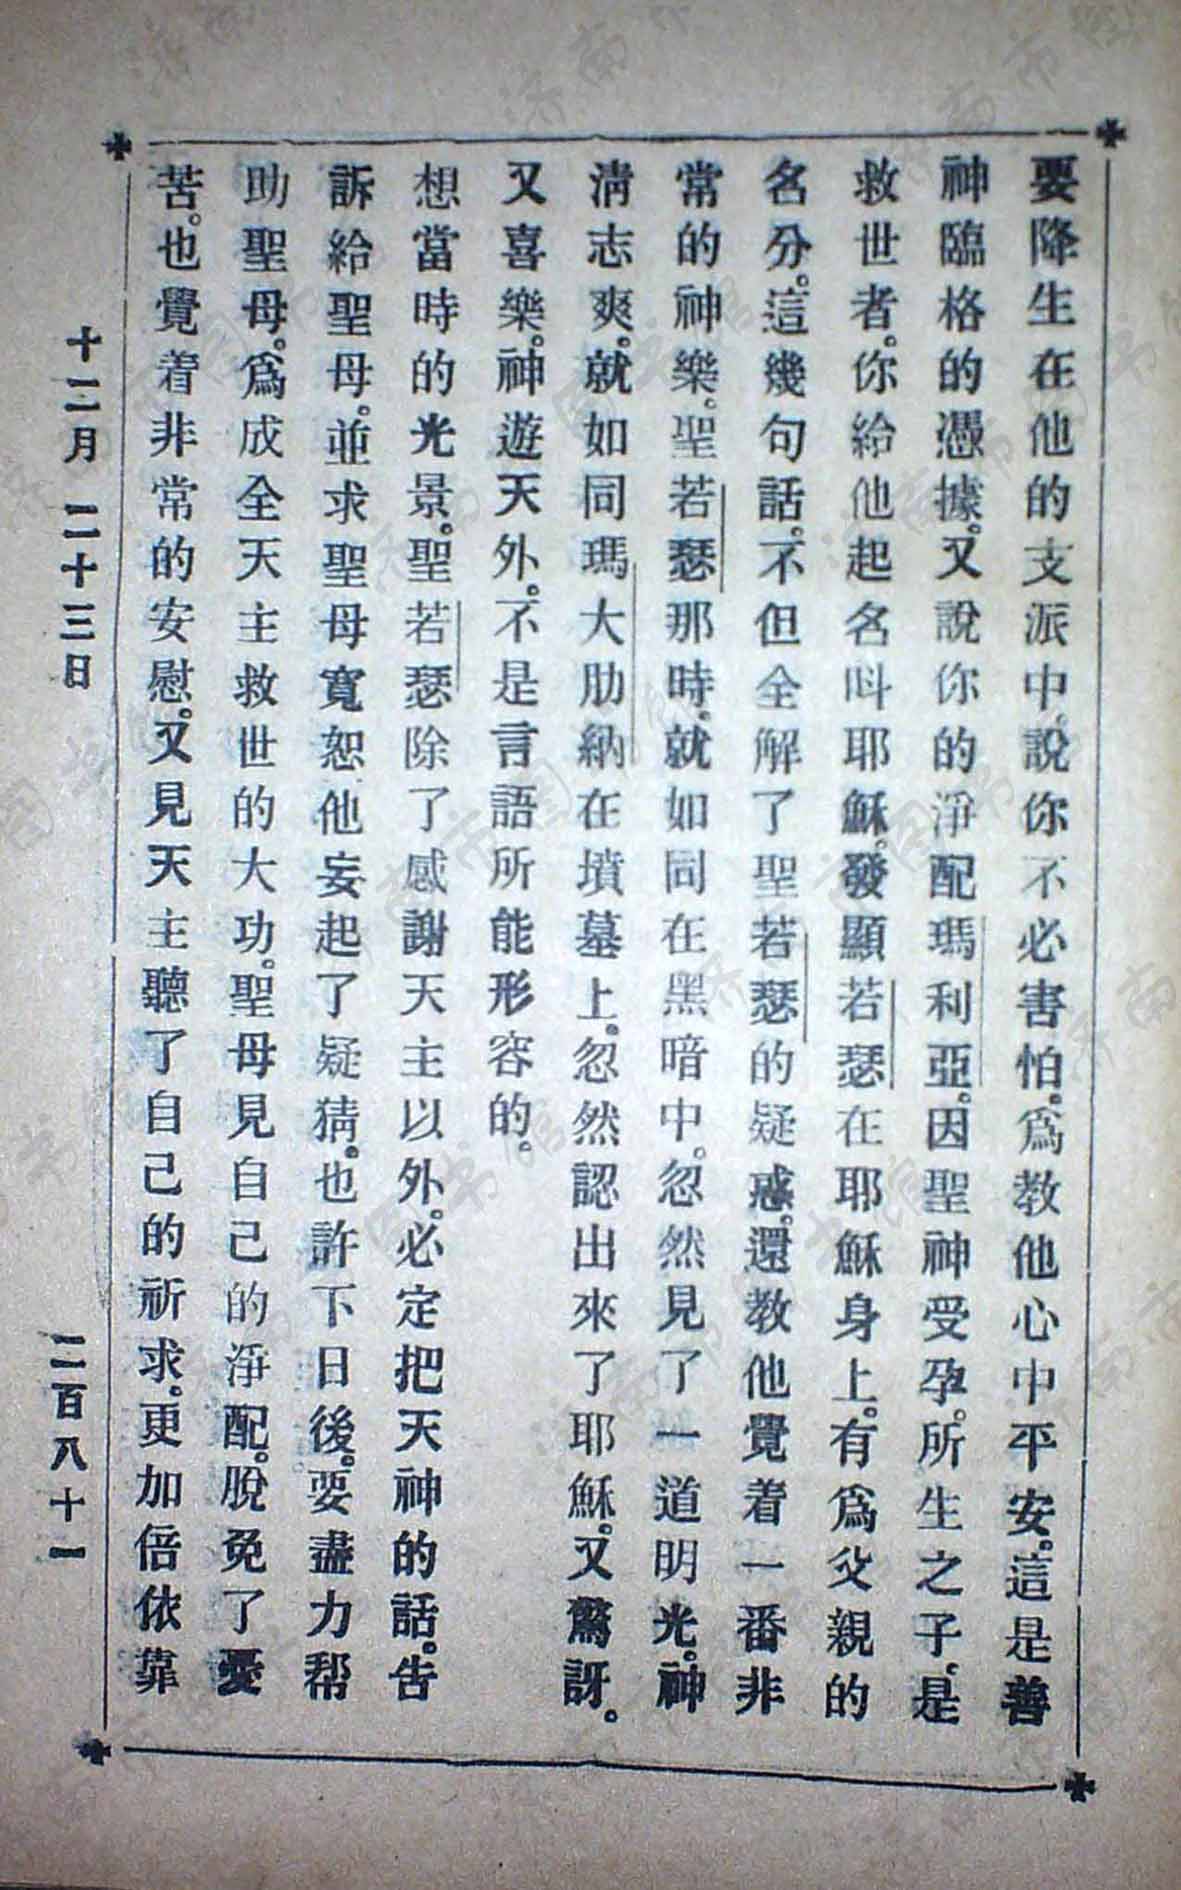 要降生在他的支派中。說你不必害怕。爲教他心中平安。這是善
神臨格的憑據。又說你的淨配瑪利亞。因聖神受孕。所生之子。是
救世者。你給他起名呌耶穌。發顯若瑟在耶穌身上。有爲父親的
名分。這幾句話。不但全解了聖若瑟的疑惑。還教他覺着一番非
常的神樂。聖若瑟那時。就如同在黑暗中。忽然見了一道明光。神
淸志爽。就如同瑪大肋納在墳墓上。忽然認出來了耶穌。又驚訝。
又喜樂。神遊天外。不是言語所能形容的。
想當時的光景。聖若瑟除了感謝天主以外。必定把天神的話。告
訴給聖母。並求聖母寬恕他妄起了疑猜。也許下日後。要盡力幇
助聖母。爲成全天主救世的大功。聖母見自己的淨配。脫免了憂
苦。也覺着非常的安慰。又見天主聽了自己的祈求。更加倍依靠
十二月 二十三日
二百八十一
濟南市图书馆